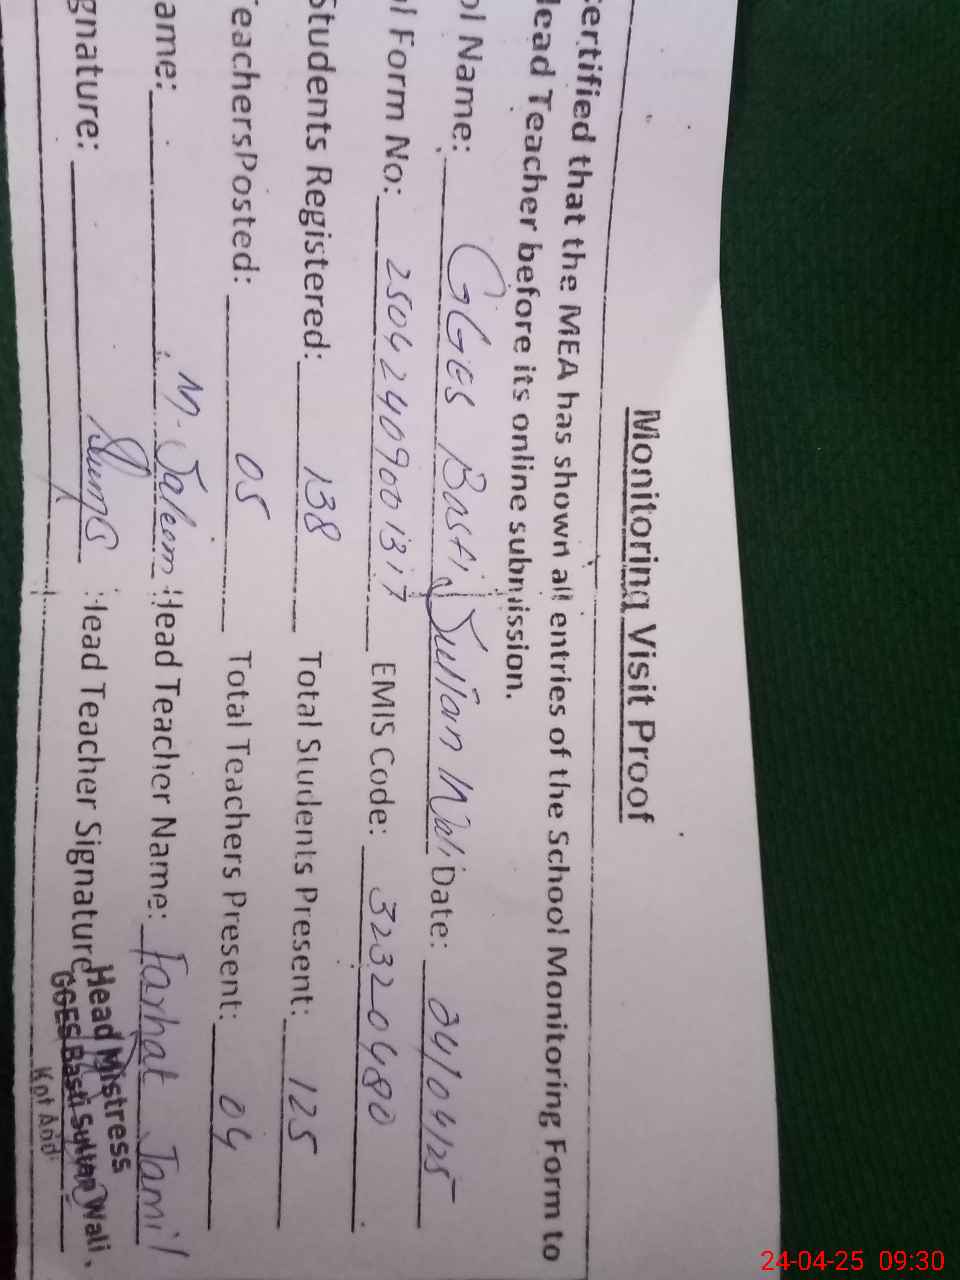 Monitoring Visit Proof
ertified that the MEA has shown all entries of the School Monitoring Form to
lead Teacher before its online submission.
ol Name: GGES Basti Sultan Wali Date: 24/04/25
l Form No: 25042409001317 EMIS Code: 32320480
Students Registered: 138 Total Students Present: 125
TeachersPosted: 05 Total Teachers Present: 04
ame: M. Saleem Head Teacher Name: Farhat Jamil
gnature: Head Teacher Signature
Head Mistress
GGES Basti Sultan Wali,
Kot Add
24-04-25 09:30